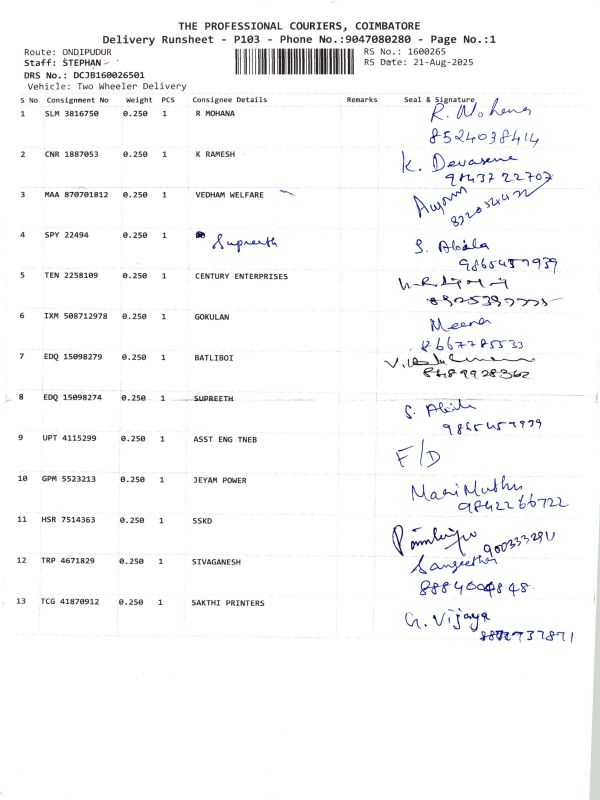 THE PROFESSIONAL COURIERS, COIMBATORE
Delivery Runsheet - P103 - Phone No.:9047080280 - Page No.:1
Route: ONDIPUDUR RS No.: 1600265
Staff: STEPHAN RS Date: 21-Aug-2025
DRS No.: DCJB160026501
Vehicle: Two Wheeler Delivery
S No Consignment No Weight PCS Consignee Details Remarks Seal & Signature
1 SLM 3816750 0.250 1 R MOHANA R. Mohana
8524038414
2 CNR 1887053 0.250 1 K RAMESH K. Devasena
9843722707
3 MAA 870701812 0.250 1 VEDHAM WELFARE
4 SPY 22494 0.250 1 Supreeth S. Abila
9865457939
5 TEN 2258109 0.250 1 CENTURY ENTERPRISES
6 IXM 508712978 0.250 1 GOKULAN Meena
8667785533
7 EDQ 15098279 0.250 1 BATLIBOI
8489928362
8 EDQ 15098274 0.250 1 SUPREETH S. Abila
9865457939
9 UPT 4115299 0.250 1 ASST ENG TNEB F/D
10 GPM 5523213 0.250 1 JEYAM POWER MariMuthu
9842266722
11 HSR 7514363 0.250 1 SSKD
12 TRP 4671829 0.250 1 SIVAGANESH Sangeetha
8884004848
13 TCG 41870912 0.250 1 SAKTHI PRINTERS G. Vijaya